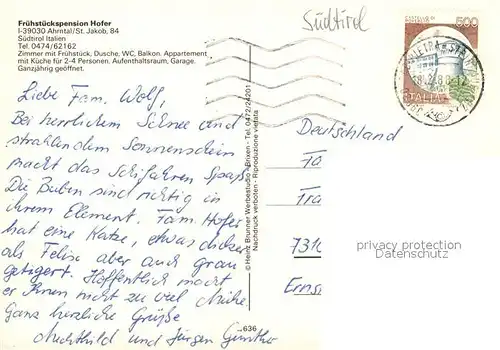 Frühstückspension Hofer
I-39030 Ahrntal/St. Jakob, 84
Südtirol Italien
Tel. 0474/62162
Zimmer mit Frühstück, Dusche, WC, Balkon. Appartement
mit Küche für 2-4 Personen. Aufenthaltsraum, Garage.
Ganzjährig geöffnet.
Südtirol
500
ITALIA
Liebe Fam. Wolf,
Bei herrlichem Schnee und
strahlendem Sonnenschein
macht das Schifahren Spaß
Die Buben sind richtig in
ihrem Element. Fam. Hofer
hat eine Katze, etwas dicker
als Felix aber auch grau
getigert. Hoffentlich macht
er Ihnen nicht zu viel Mühe
Ganz herzliche Grüße
Mechthild und Jürgen Günther
© Heinz Brunner Werbestudio - Brixen - Tel. 0472/24201
Nachdruck verboten - Riproduzione vietata
Deutschland
Fa
Fra
7310
Erns
privacy protection
Datenschutz
636